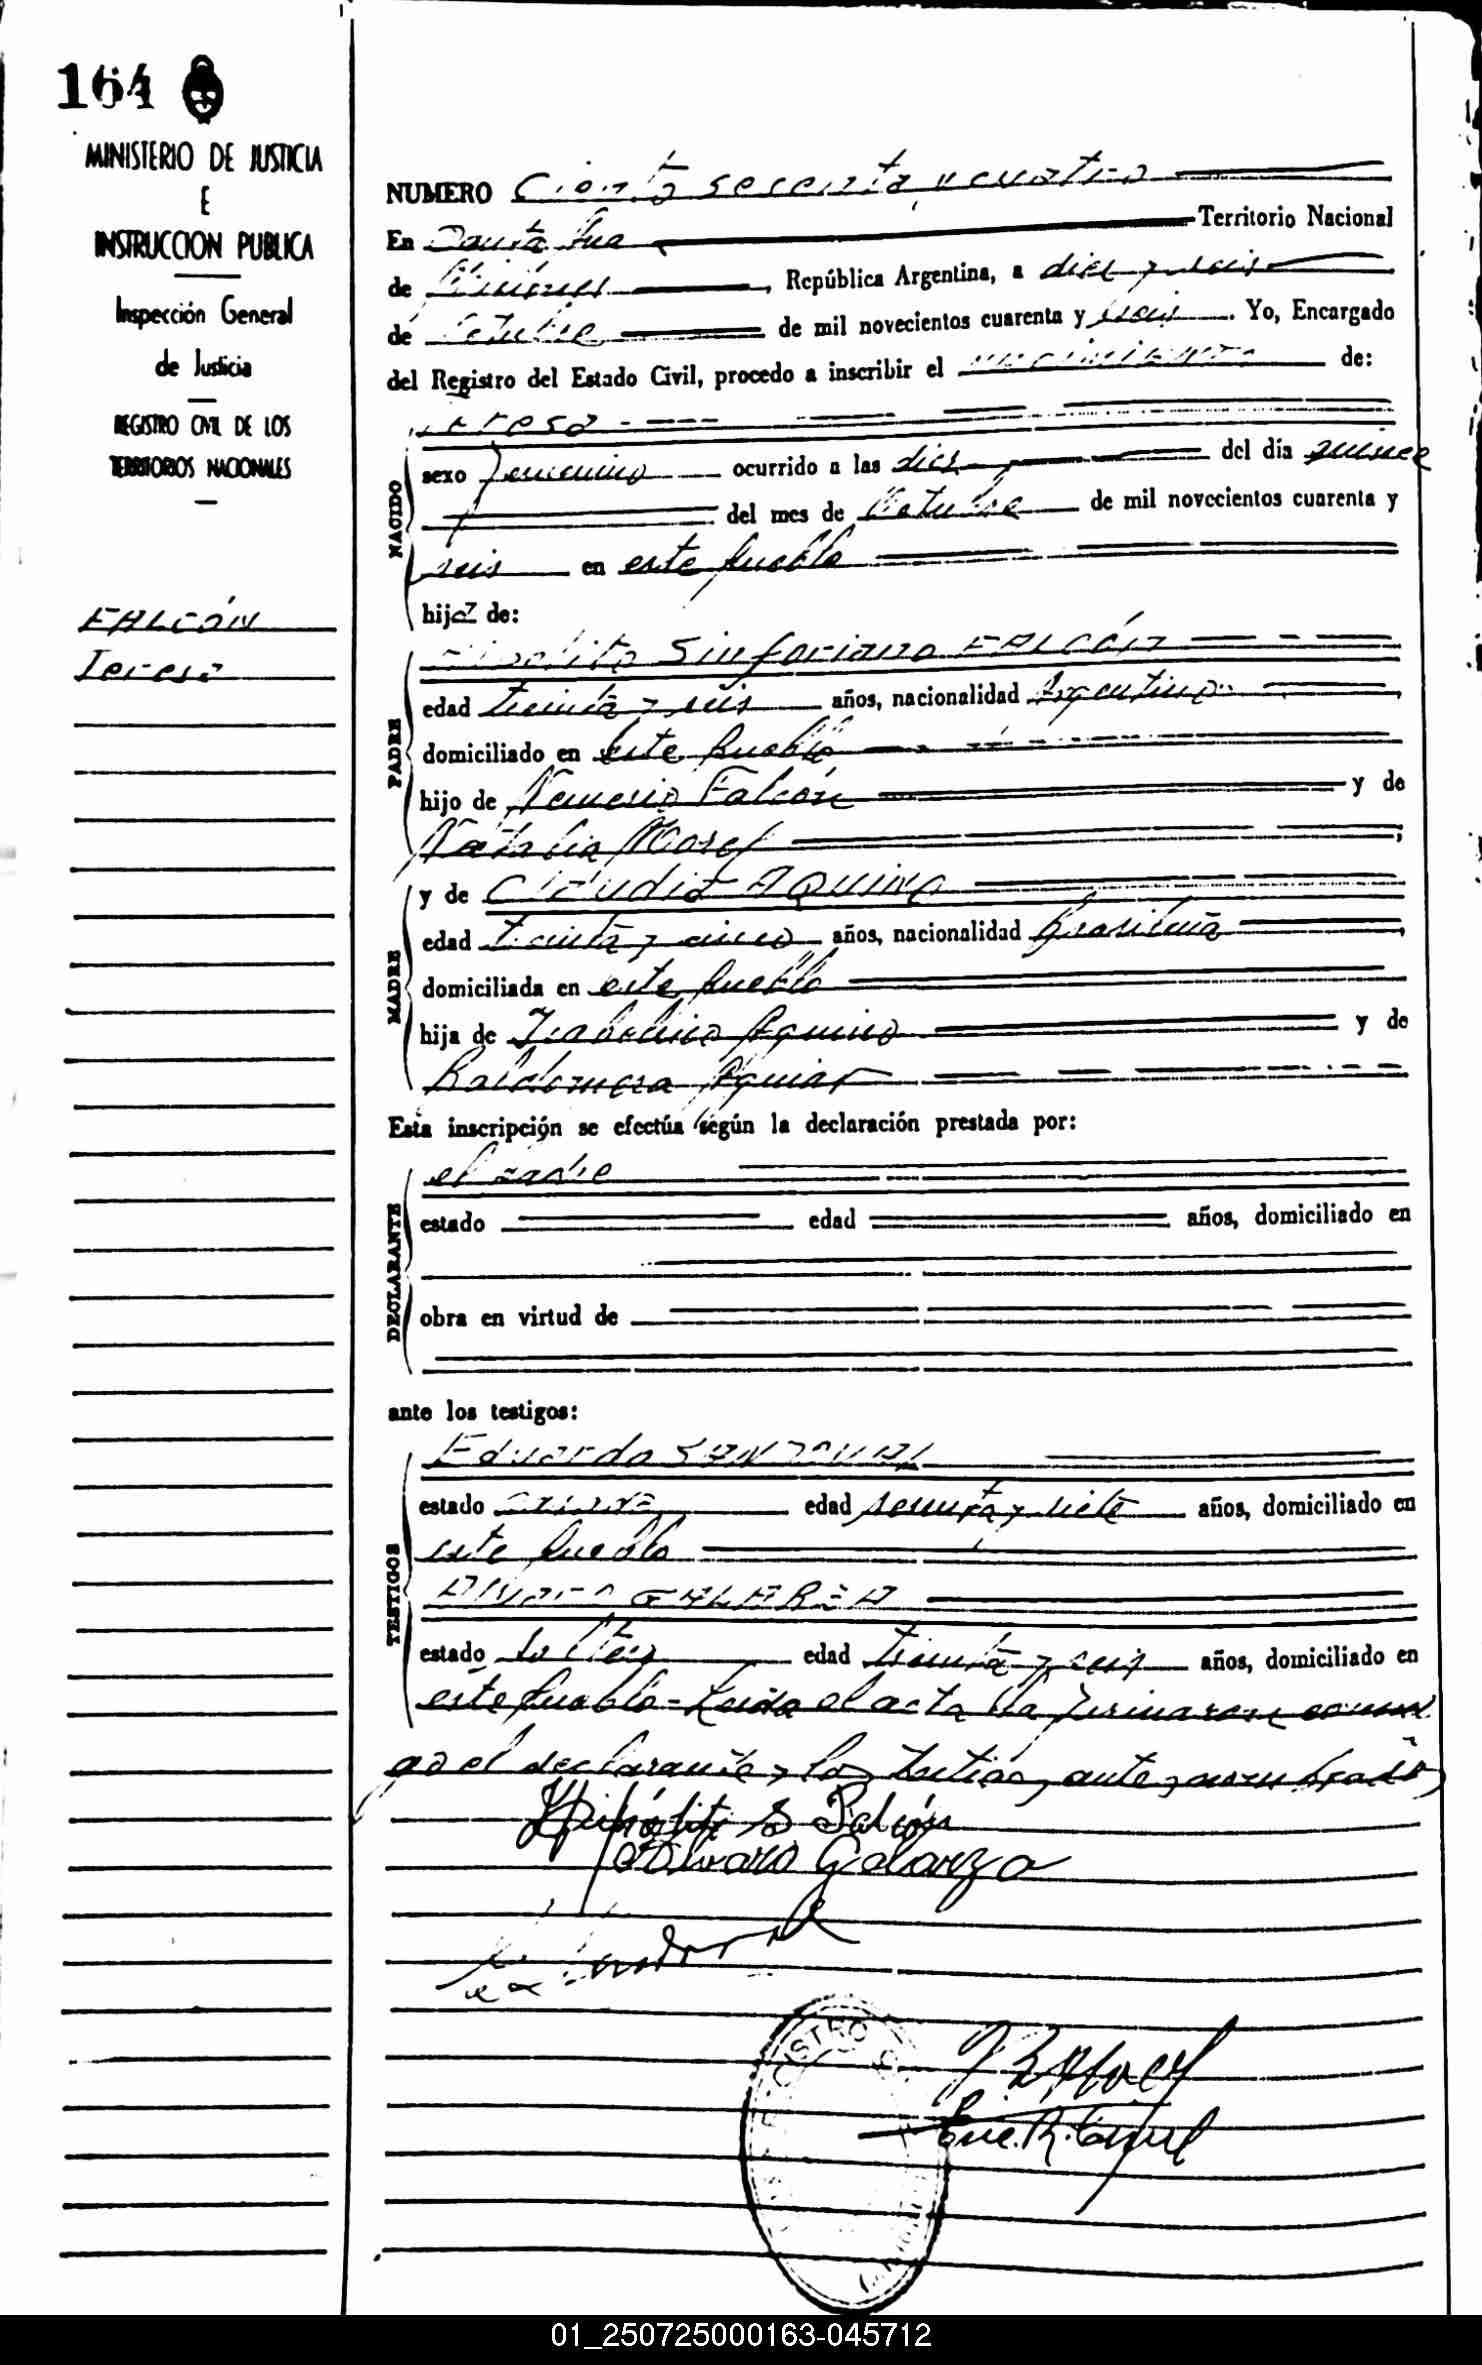 164
MINISTERIO DE JUSTICIA
E
INSTRUCCION PUBLICA
Inspección General
de Justicia
REGISTRO CIVIL DE LOS
TERRITORIOS NACIONALES
FALCÓN
Teresa
NUMERO Ciento sesenta y cuatro
En Santa Ana Territorio Nacional
de Misiones, República Argentina, a diez y seis
de Octubre de mil novecientos cuarenta y seis. Yo, Encargado
del Registro del Estado Civil, procedo a inscribir el nacimiento de:
NACIDO
Teresa
sexo femenino ocurrido a las diez del día quince
del mes de Octubre de mil novecientos cuarenta y
seis en este pueblo
hija de:
PADRE
Hipólito Sinforiano FALCÓN
edad treinta y seis años, nacionalidad Argentina
domiciliado en este pueblo
hijo de Nemesio Falcón y de
Natalia
MADRE
y de Claudia AQUINO
edad treinta y cinco años, nacionalidad brasileña
domiciliada en este pueblo
hija de Aquino y de
Baldomera Aguiar
Esta inscripción se efectúa según la declaración prestada por:
DECLARANTE
el padre
estado edad años, domiciliado en
obra en virtud de
ante los testigos:
TESTIGOS
Eduardo SANDOVAL
estado edad sesenta y siete años, domiciliado en
este pueblo
Alvaro GALARZA
estado soltero edad treinta y seis años, domiciliado en
este pueblo - Leida el acta la firmaron conmi
go el declarante y los testigos antes nombrados
Hipólito S Falcón
Alvaro Galarza
01_250725000163-045712